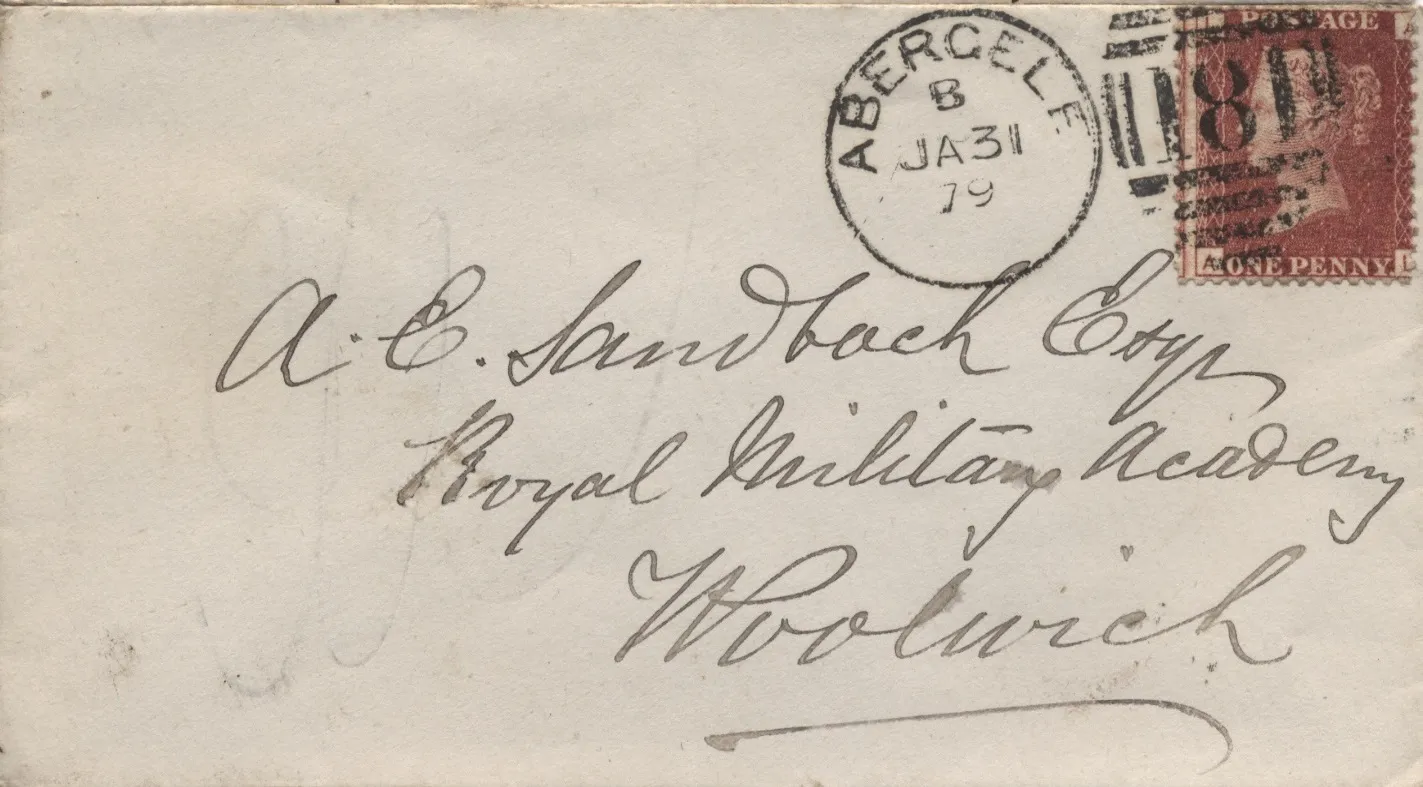 ABERGELE
B
JA 31
79
181
POSTAGE
ONE PENNY
A. E. Sandbach Esqr
Royal Military Academy
Woolwich